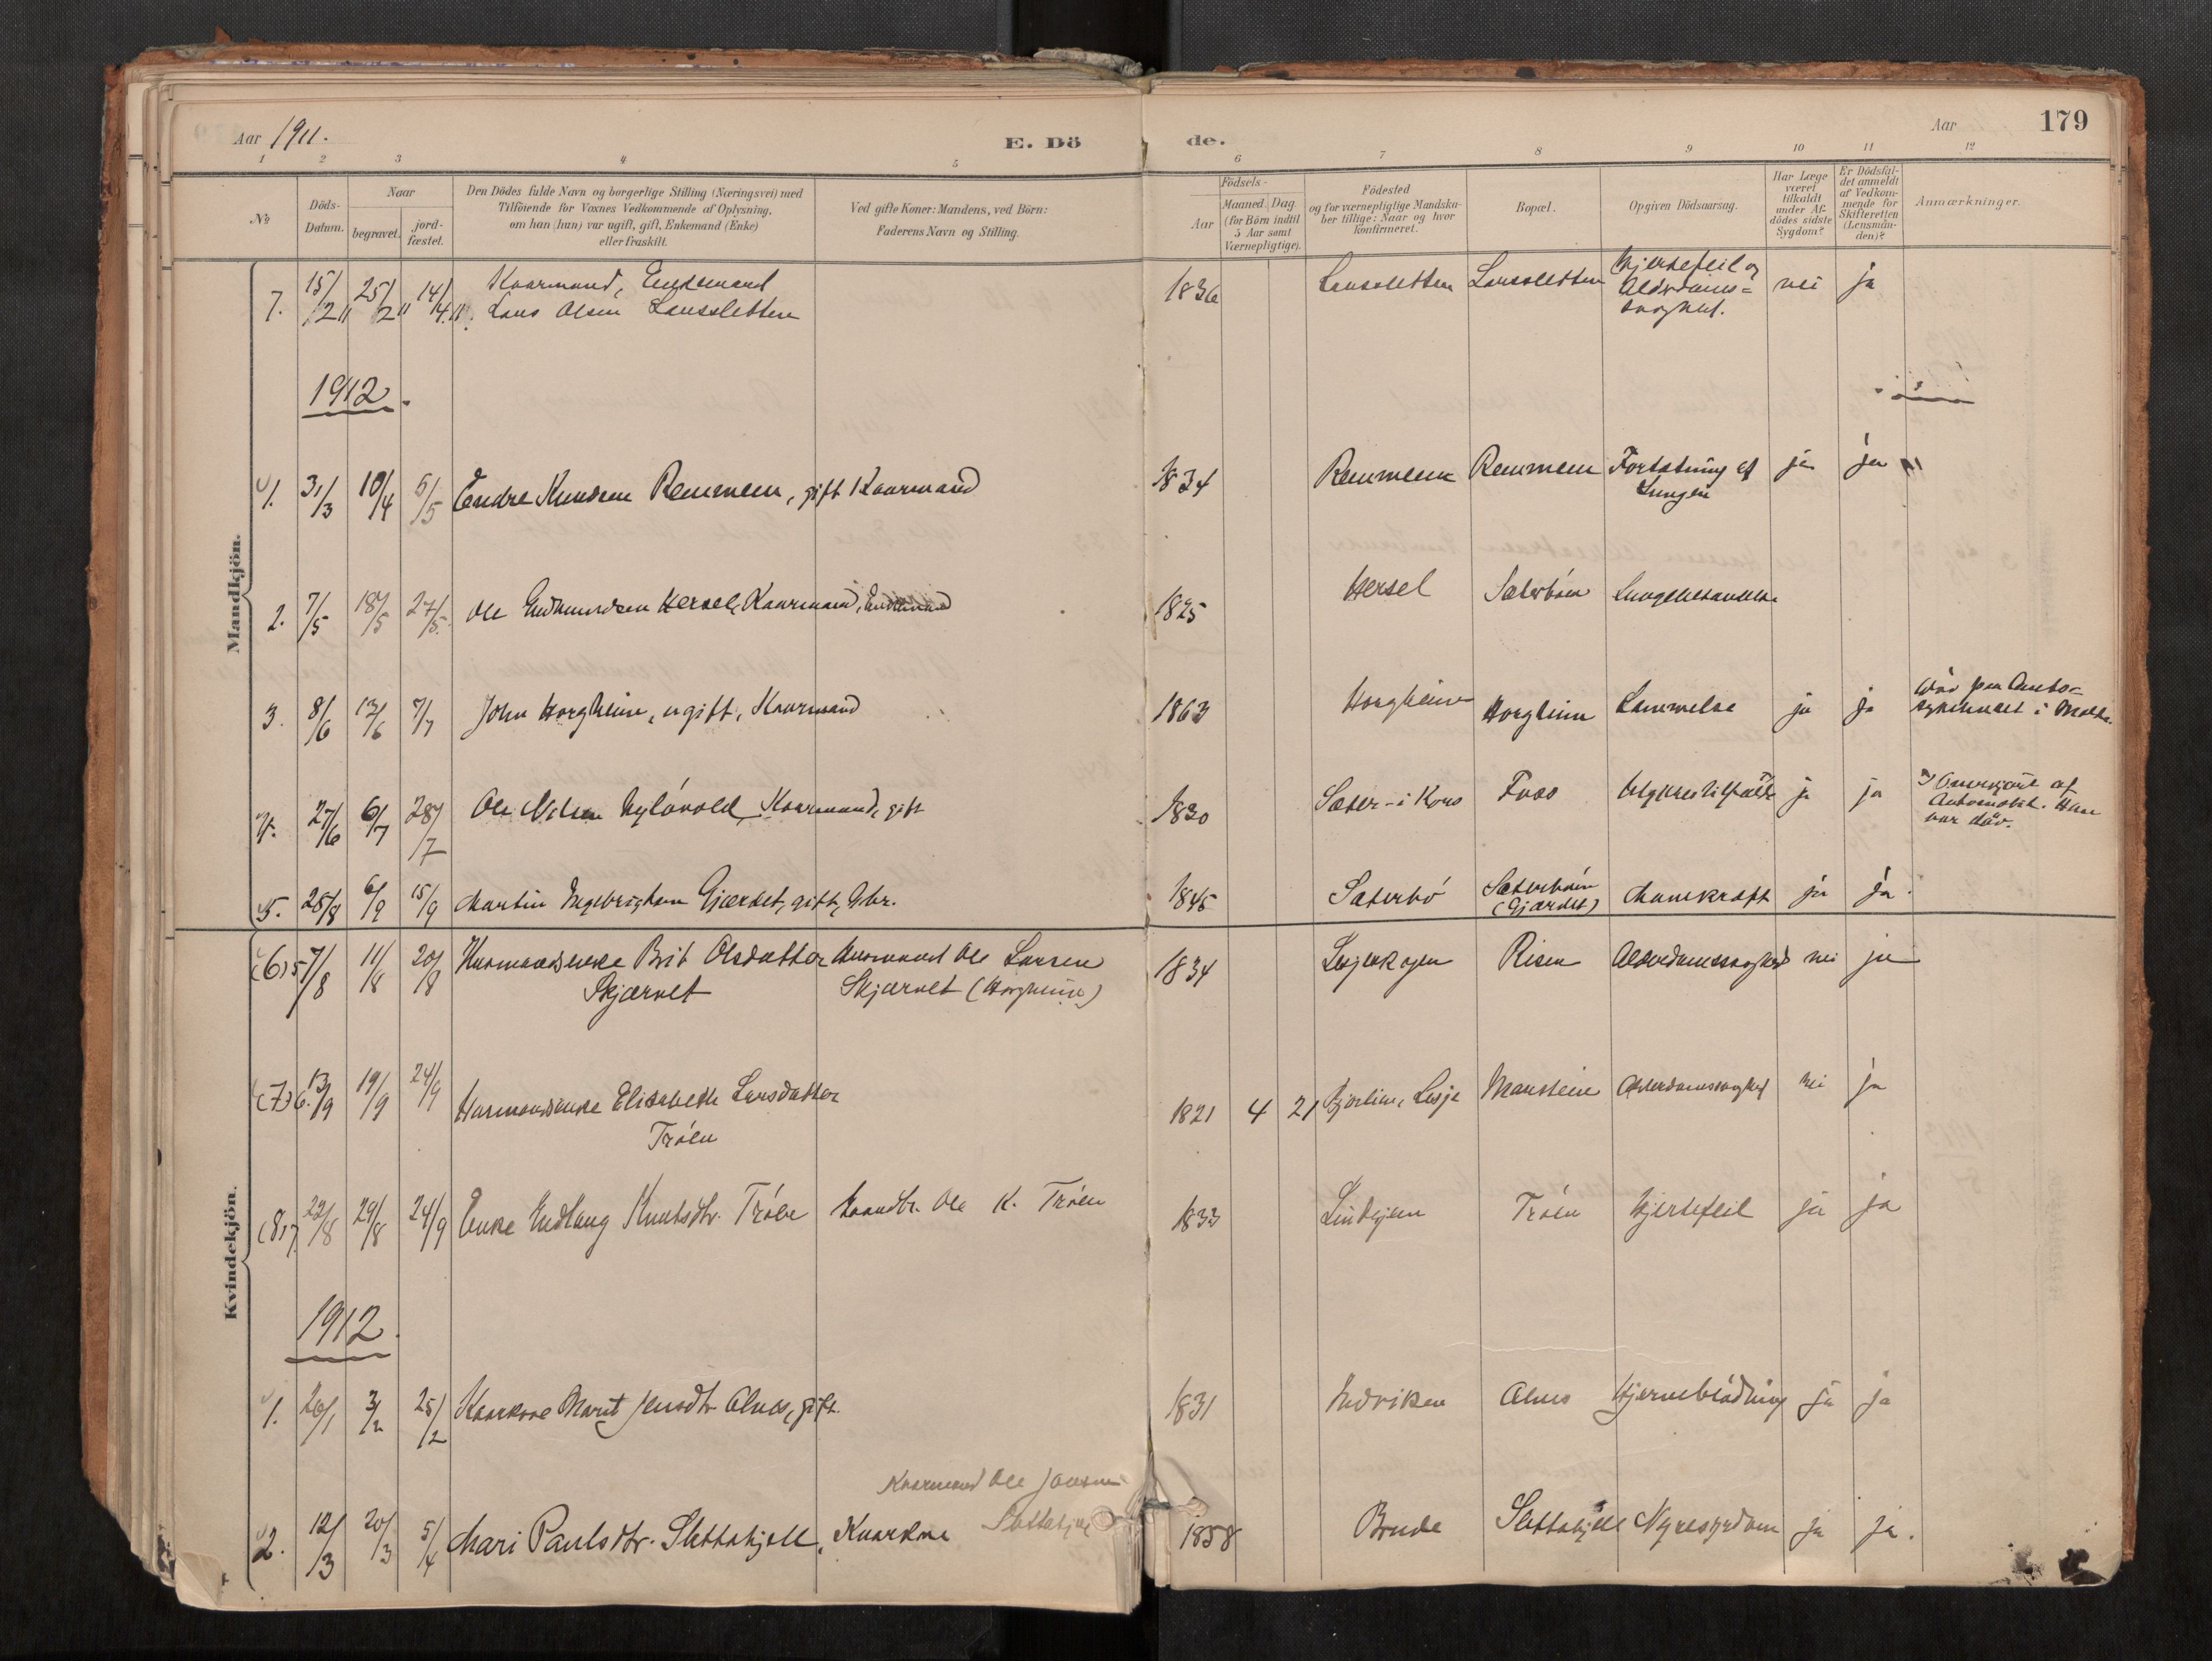 Aar 1911.
E. Dö
de.
Aar
179
1 2 3 4 5 6 7 8 9 10 11 12
No
Döds-
Datum.
Naar
begravet.
jord-
fæstet.
Den Dödes fulde Navn og borgerlige Stilling (Næringsvei) med
Tilföiende for Voxnes Vedkommende af Oplysning,
om han (hun) var ugift, gift, Enkemand (Enke)
eller fraskilt.
Ved gifte Koner: Mandens, ved Börn:
Faderens Navn og Stilling.
Födsels-
Aar
Maaned. Dag.
(for Börn indtil
5 Aar samt
Værnepligtige).
Födested
og for værnepligtige Mandska-
ber tillige: Naar og hvor
konfirmeret.
Bopæl.
Opgiven Dödsaarsag.
Har Læge
været
tilkaldt
under Af-
dödes sidste
Sygdom?
Er Dödsfal-
det anmeldt
af Vedkom-
mende for
Skifteretten
(Lensman-
den)?
Anmærkninger.
Mandkjön.
7. 15/2 11 25/2 11 14/4 11. Kaarmand, Enkemand
Lars Olsen Larssletten
1836 Larssletten Larssletten Hjertefeil og
Alderdoms=
svaghet. nei ja
1912.
1. 31/3 10/4 5/5 Endre Knudsen Remmem, gift Kaarmand 1834 Remmem Remmem Fortætning af
Lungen ja ja
2. 7/5 18/5 27/5. Ole Endresen Hersel, Kaarmand, Enkemand 1825 Hersel Sæterbøen Lungebetændelse
3. 8/6 13/6 7/7 John Horgheim, ugift, Kaarmand 1863 Horgheim Horgheim Lammelse ja ja Død paa Amts-
sykehuset i Molde.
4. 27/6 6/7 28/7 Ole Nilsen Nyløvold, Kaarmand, gift 1830 Sæter i Kors Fvas Ulykkestilfælde ja ja Overkjørt af
Automobil. Han
var døv.
5. 28/8 6/9 15/9 Martin Engebrigtsen Gjærdet, gift, Gbr. 1845 Sæterbø Sæterbøen
(Gjærdet) Mavekræft ja ja.
Kvindekjön.
(6) 5 7/8 11/8 20/8 Husmandsenke Brit Olsdatter
Skjærvet Husmand Ole Larsen
Skjærvet (Horgheim) 1834 Lesjeskogen Risen Alderdomssvaghed nei ja
(7) 6. 13/9 19/9 24/9 Husmandsenke Elisabeth Larsdatter
Trøen 1821 4 21 Bjorlien, Lesje Marstein Alderdomssvaghed nei ja
(8) 7. 22/8 29/8 24/9 Enke Endlaug Knutsdtr. Trøen Gaardbr. Ole K. Trøen 1833 Trøen Hjertefeil ja ja
1912.
1. 26/1 3/2 25/2 Kaarkone Marit Jensdtr Alnes, gift. 1831 Indviken Alnes Hjerneblødning ja ja
Kaarmand Ole Jonsen
Slettahjell
2. 12/3 20/3 5/4 Mari Paulsdtr. Slettahjell, Kaarkone 1858 Brude Slettahjell Nyresygdom ja ja.